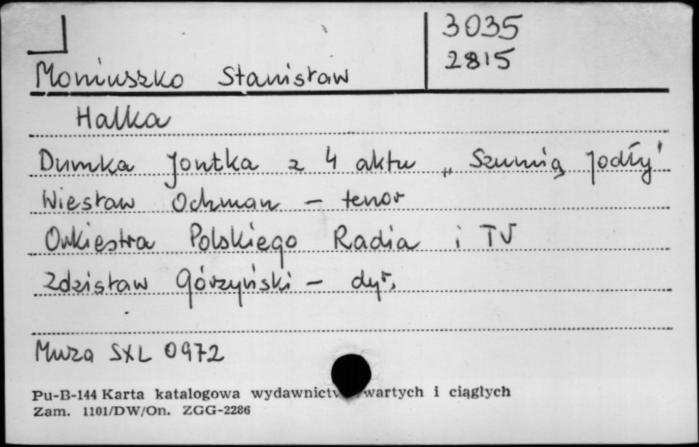 3035
2815
Moniuszko Stanisław
Halka
Dumka Jontka z 4 aktu „Szumią jodły"
Wiesław Ochman – tenor
Orkiestra Polskiego Radia i TV
Zdzisław Górzyński – dyr.
Muza SXL 0972
Pu-B-144 Karta katalogowa wydawnictw zwartych i ciągłych
Zam. 1101/DW/On. ZGG-2286